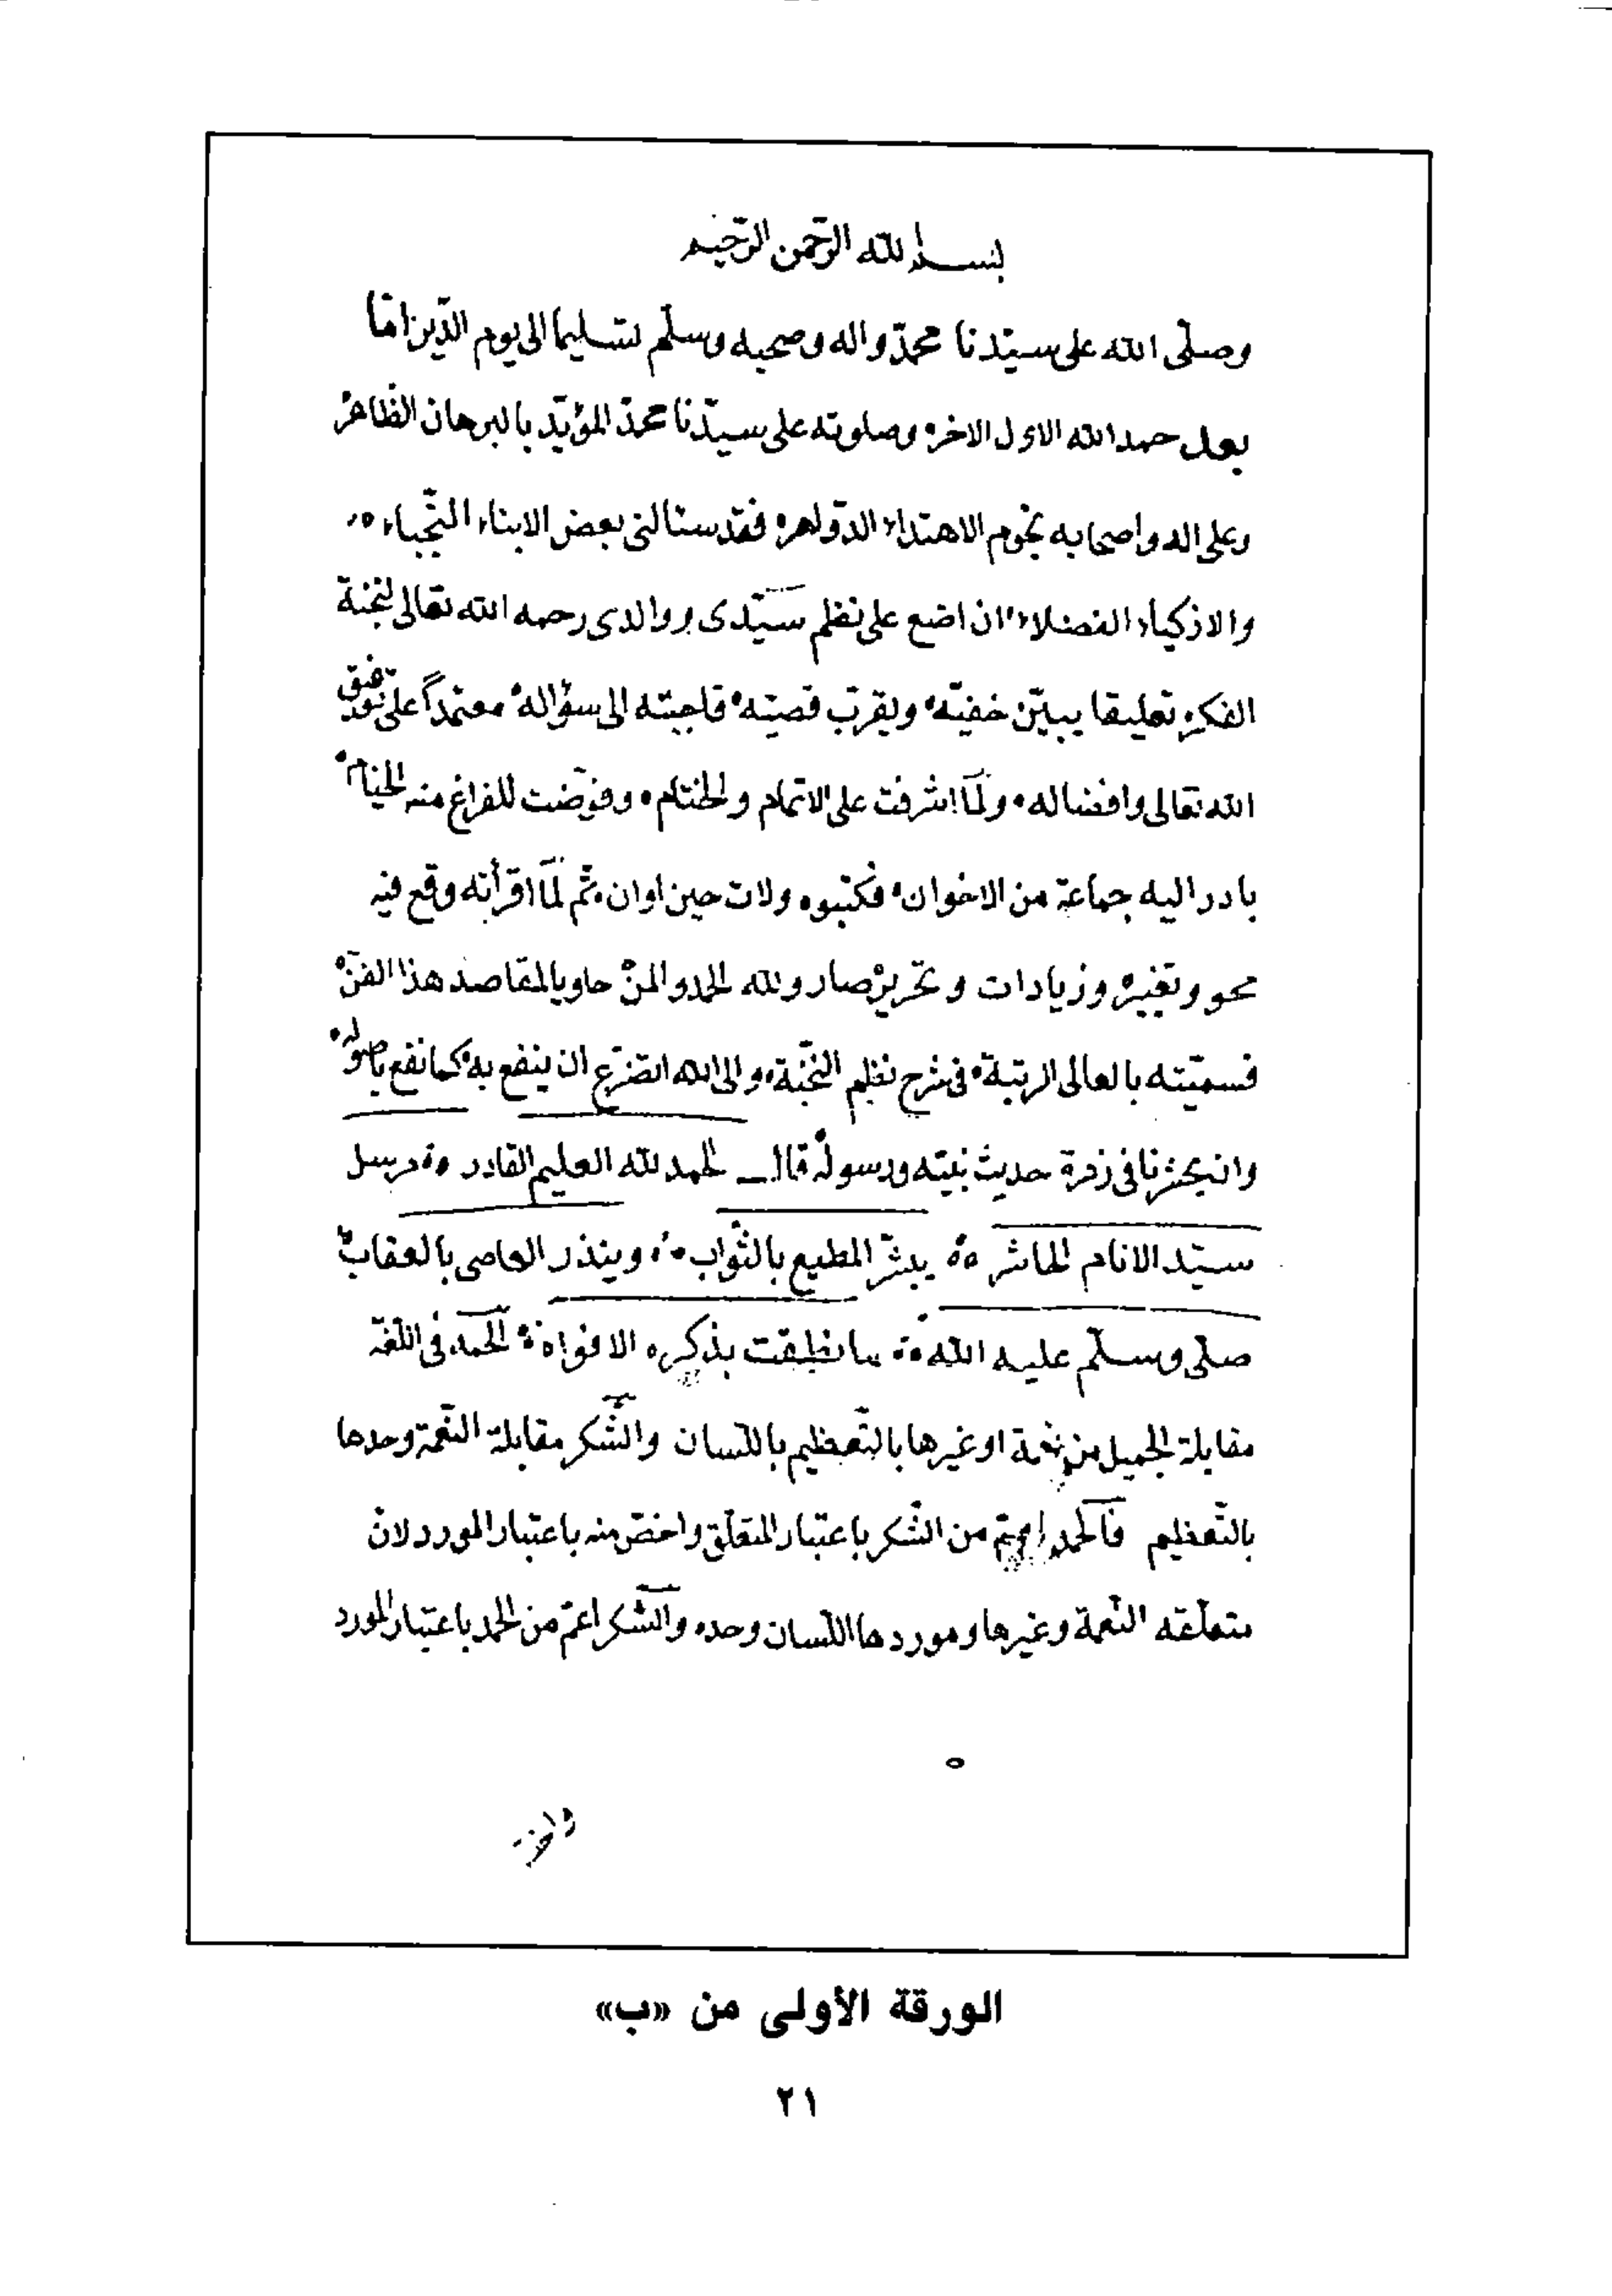 بسم الله الرحمن الرحيم
وصلّى الله على سيّدنا محمّد واله وصحبه وسلّم تسليما الى يوم الدّين امّا
بعد حمد الله الاول الاخر وصلوته على سيّدنا محمد المؤيّد بالبرهان الظاهر
وعلى اله واصحابه نجوم الاهتداء الدواهر فقد سئالنى بعض الابناء النّجباء
والاذكياء الفضلاء ان اضع على نظم سيّدى ووالدى رحمه الله تعالى لنخبة
الفكر تعليقا يبيّن خفيّه ويقرّب قصيّه فاجبته الى سؤاله معتمداً على توفيق
الله تعالى وافضاله ولمّا اشرفت على الاتمام والختام وفوّضت للفراغ منه الخيام
بادر اليه جماعة من الاخوان فكتبوه ولات حين اوان ثم لمّا اقرأته وقع فيه
محو وتغيير وزيادات وتحرير صار ولله الحمد والمنّ حاويا لمقاصد هذا الفنّ
فسمّيته بالعالى الرتبة فى شرح نظم النّخبة والى الله اتضرّع ان ينفع به كما نفع باصوله
وان يحشرنا فى زمرة حديث نبيّه ورسوله قال الحمد لله العليم القادر مرسل
سيّد الانام الحاشر يبشّر المطيع بالثّواب وينذر العاصى بالعقاب
صلى وسلّم عليه الله ما نطقت بذكره الافواه الحمد فى اللّغة
مقابلة الجميل من نعمة او غيرها بالتّعظيم باللّسان والشّكر مقابلة النّعمة وحدها
بالتّعظيم فالحمد اعمّ من الشّكر باعتبار المتعلّق واخصّ منه باعتبار المورد لانّ
متعلّقه النّعمة وغيرها وموردها اللّسان وحده والشّكر اعمّ من الحمد باعتبار المورد
الورقة الأولى من «ب»
٢١